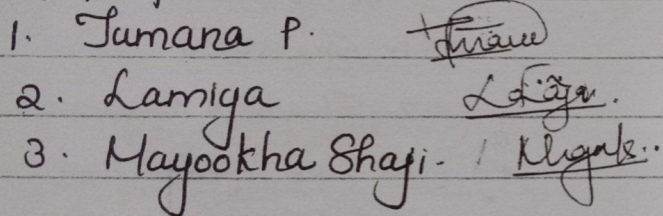 1. Jumana P.
2. Lamiya
3. Mayookha Shaji.